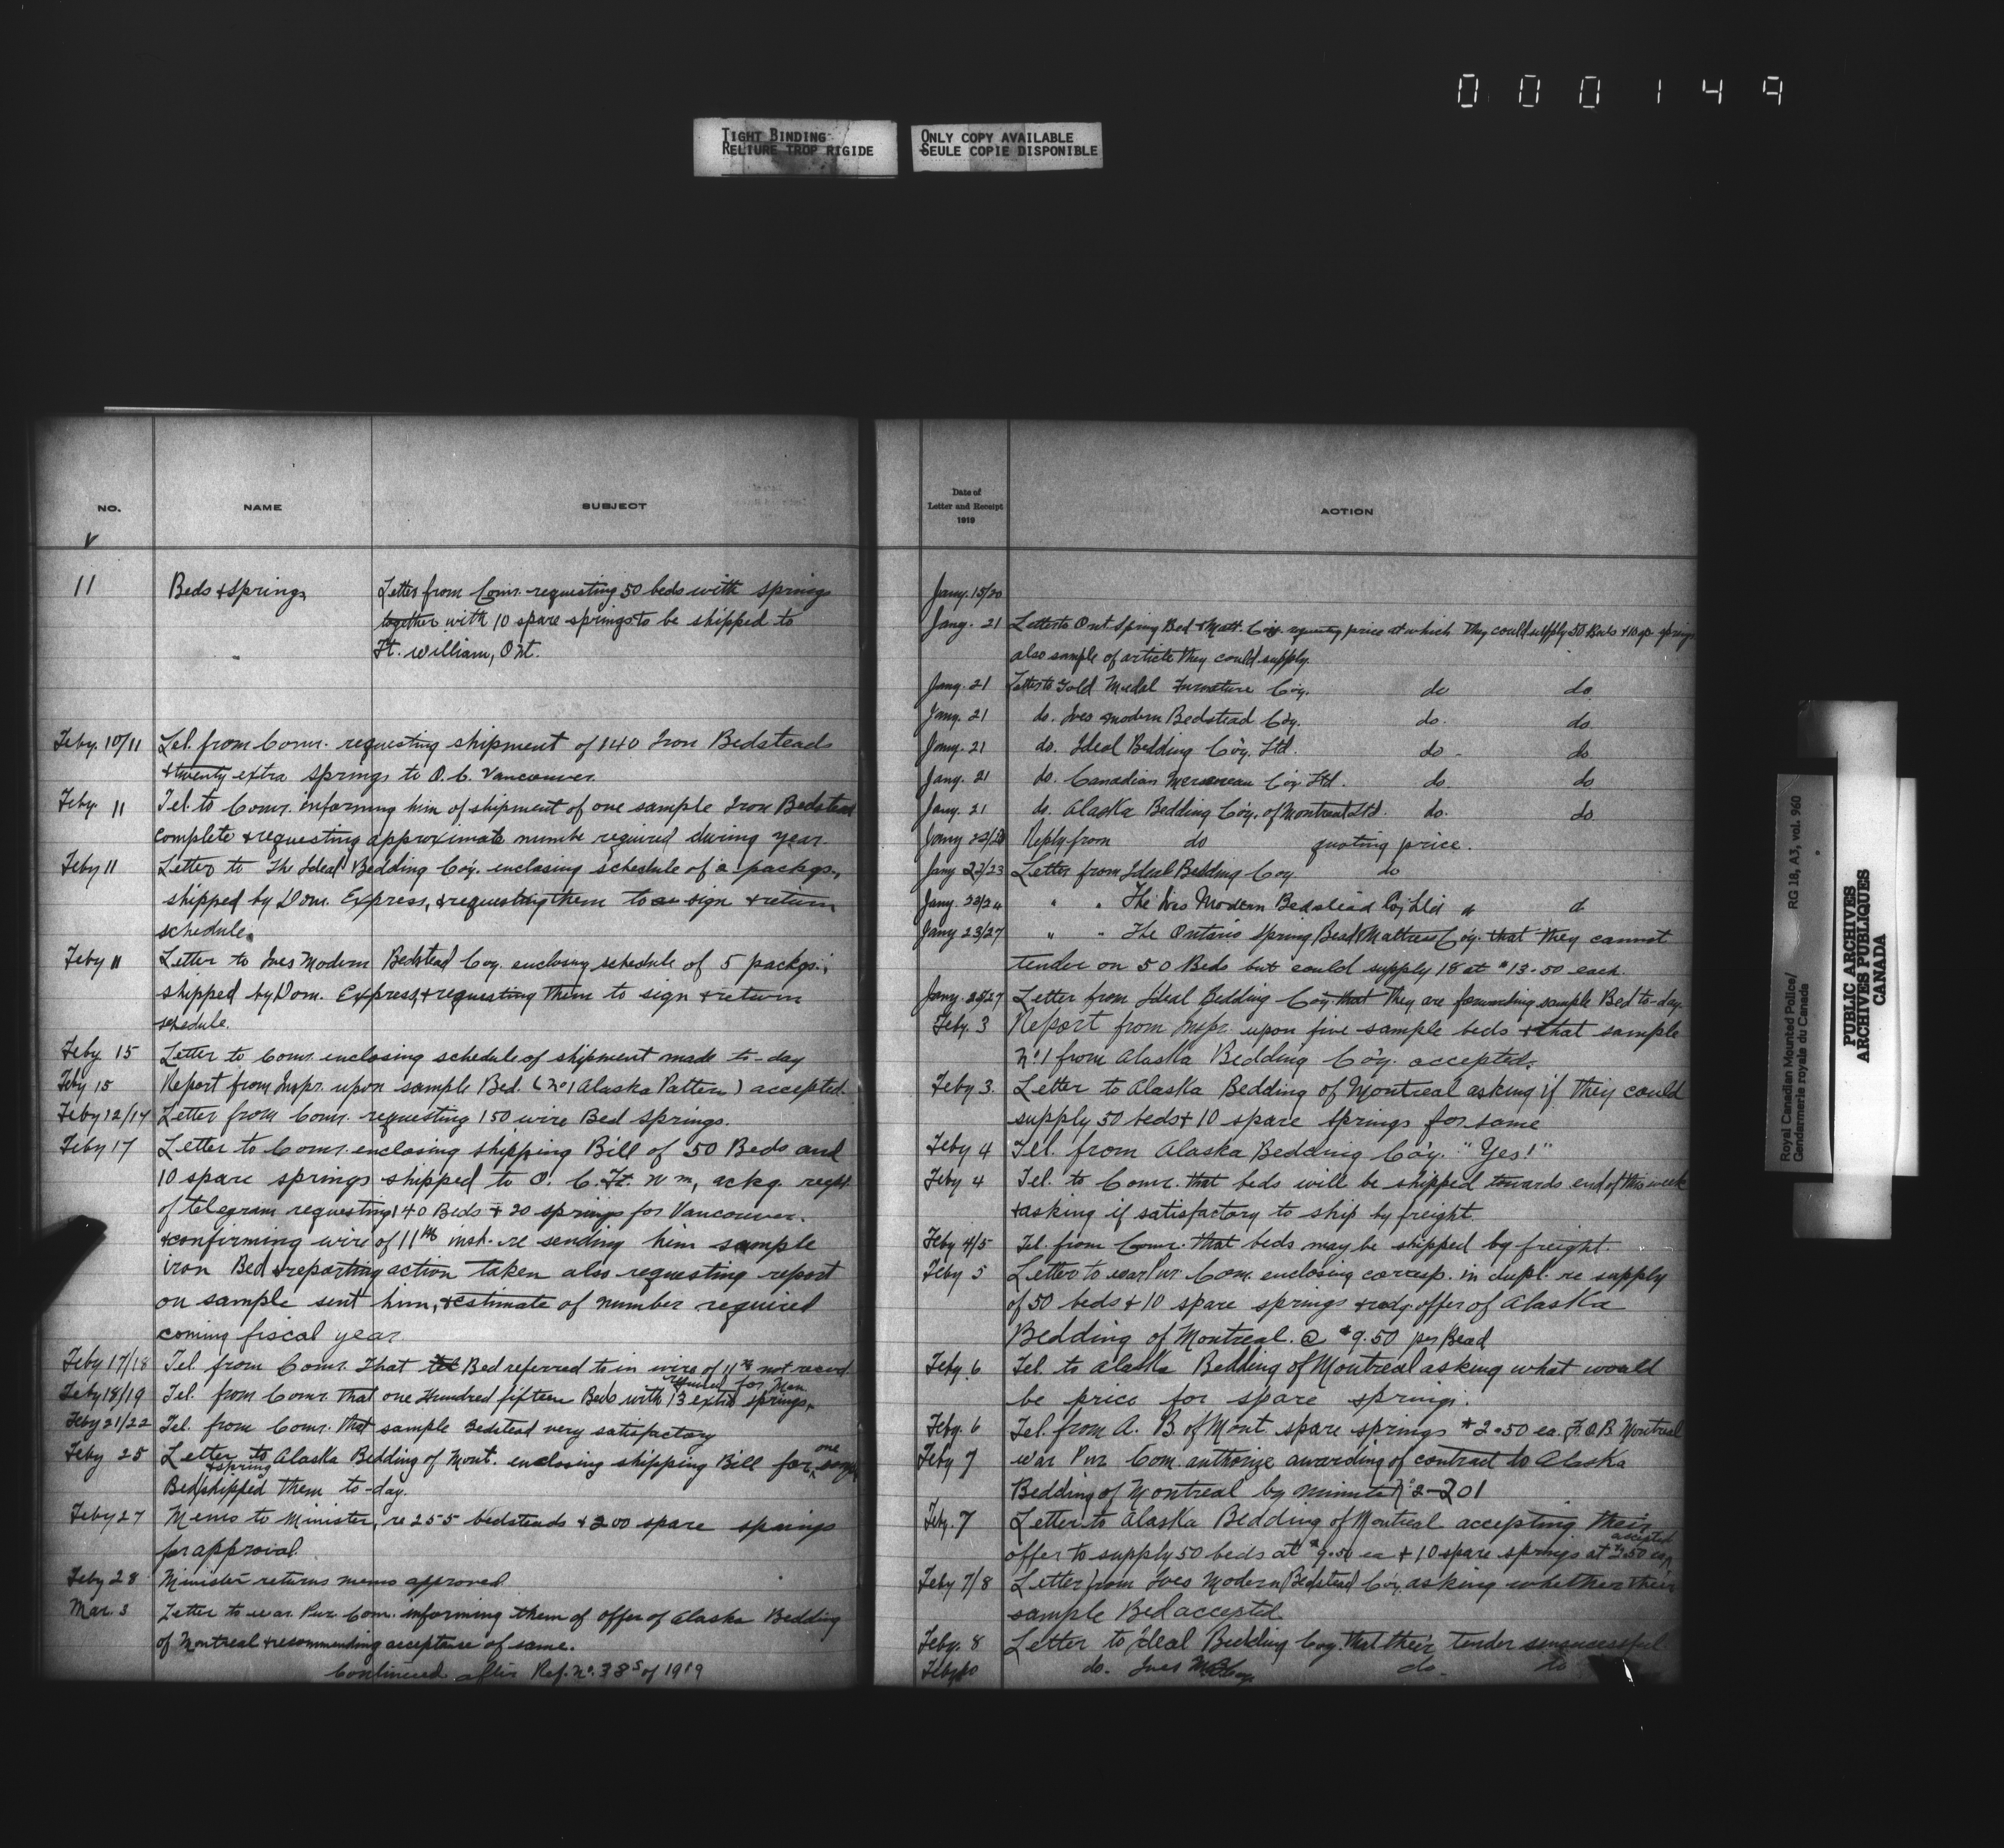 000149
TIGHT BINDING
RELIURE TROP RIGIDE
ONLY COPY AVAILABLE
SEULE COPIE DISPONIBLE
NO. NAME SUBJECT
11 Beds & Springs Letter from Comr. requesting 50 beds with springs
together with 10 spare springs to be shipped to
Ft. William, Ont.
Feby. 10/11 Tel. from Comr. requesting shipment of 140 Iron Bedsteads
& twenty extra springs to O.C. Vancouver
Feby. 11 Tel. to Comr. informing him of shipment of one sample Iron Bedstead
complete & requesting approximate number required during year.
Feby 11 Letter to The Ideal Bedding Coy. enclosing schedule of 2 packgs.,
shipped by Dom. Express, & requesting them to sign & return
schedule.
Feby 11 Letter to Ives Modern Bedstead Coy. enclosing schedule of 5 packgs.;
shipped by Dom. Express, & requesting them to sign & return
schedule.
Feby 15 Letter to Comr. enclosing schedule of shipment made to-day
Feby 15 Report from Inspr. upon sample Bed. (No 1 Alaska Pattern) accepted.
Feby 12/14 Letter from Comr. requesting 150 wire Bed springs.
Feby 17 Letter to Comr. enclosing shipping Bill of 50 Beds and
10 spare springs shipped to O. C. Ft. Wm, ackg. recpt
of telegram requesting 140 Beds & 20 springs for Vancouver.
& confirming wire of 11th inst. re sending him sample
iron Bed & reporting action taken also requesting report
on sample sent him, & estimate of number required
coming fiscal year
Feby 17/18 Tel. from Comr. that Bed referred to in wire of 11th not recvd.
required for Man.
Feby 18/19 Tel. from Comr. that one Hundred fifteen Beds with 13 extra springs
Feby 21/22 Tel. from Comr. that sample Bedstead very satisfactory
Feby 25 Letter to Alaska Bedding of Mont. enclosing shipping Bill for one
Bed & spring shipped them to-day.
Feby 27 Memo to Minister, re 255 bedsteads & 200 spare springs
for approval.
Feby 28 Minister returns memo approved
Mar. 3 Letter to War Pur. Com. informing them of offer of Alaska Bedding
of Montreal & recommending acceptance of same.
Continued after Ref. No. 385 of 1919
Date of
Letter and Receipt
1919
ACTION
Jany. 15/20
Jany. 21 Letter to Ont. Spring Bed & Matt. Coy. requesting price at which they could supply 50 Beds & 10 sp. springs
also sample of article they could supply.
Jany. 21 Letter to Gold Medal Furniture Coy. do do
Jany. 21 do. Ives Modern Bedstead Coy. do. do.
Jany. 21 do. Ideal Bedding Coy. Ltd. do - do.
Jany. 21 do. Canadian Mersereau Coy Ltd. do. do.
Jany. 21 do. Alaska Bedding Coy. of Montreal Ltd. do. do.
Jany Reply from do quoting price.
Jany 22/23 Letter from Ideal Bedding Coy do
Jany. 22/24 " " The Ives Modern Bedstead Coy Ltd
Jany 23/27 " " The Ontario Spring Bead Mattress Coy. that they cannot
tender on 50 Beds but could supply 18 at $13.50 each.
Jany. Letter from Ideal Bedding Coy that they are forwarding sample Bed to-day.
Feby. 3 Report from Inspr. upon five sample beds & that sample
No. 1 from Alaska Bedding Coy. accepted.
Feby 3. Letter to Alaska Bedding of Montreal asking if they could
supply 50 beds & 10 spare springs for same
Feby 4 Tel. from Alaska Bedding Coy. "Yes!"
Feby 4 Tel. to Comr. that beds will be shipped towards end of this week
& asking if satisfactory to ship by freight.
Feby 4/5 Tel. from Comr. that beds may be shipped by freight.
Feby 5 Letter to War Pur. Com. enclosing corresp. in dupl. re supply
of 50 beds & 10 spare springs & offer of Alaska
Bedding of Montreal. @ $9.50 per Bead
Feby. 6 Tel. to Alaska Bedding of Montreal asking what would
be price for spare springs.
Feby. 6 Tel. from A. B. of Mont spare springs $2.50 ea. F.O.B. Montreal
Feby 7 War Pur Com. authorize awarding of contract to Alaska
Bedding of Montreal by minute No 2-201
Feby. 7 Letter to Alaska Bedding of Montreal accepting their
offer to supply 50 beds at $9.50 ea & 10 spare springs at $2.50 ea accepted
Feby 7/8 Letter from Ives Modern Bedstead Coy. asking whether their
sample Bed accepted
Feby. 8 Letter to Ideal Bedding Coy. that their tender unsuccessful
Feby 10 do. Ives M.B. Coy. do. do
Royal Canadian Mounted Police/
Gendarmerie royale du Canada
RG 18, A3, vol. 960
PUBLIC ARCHIVES
ARCHIVES PUBLIQUES
CANADA